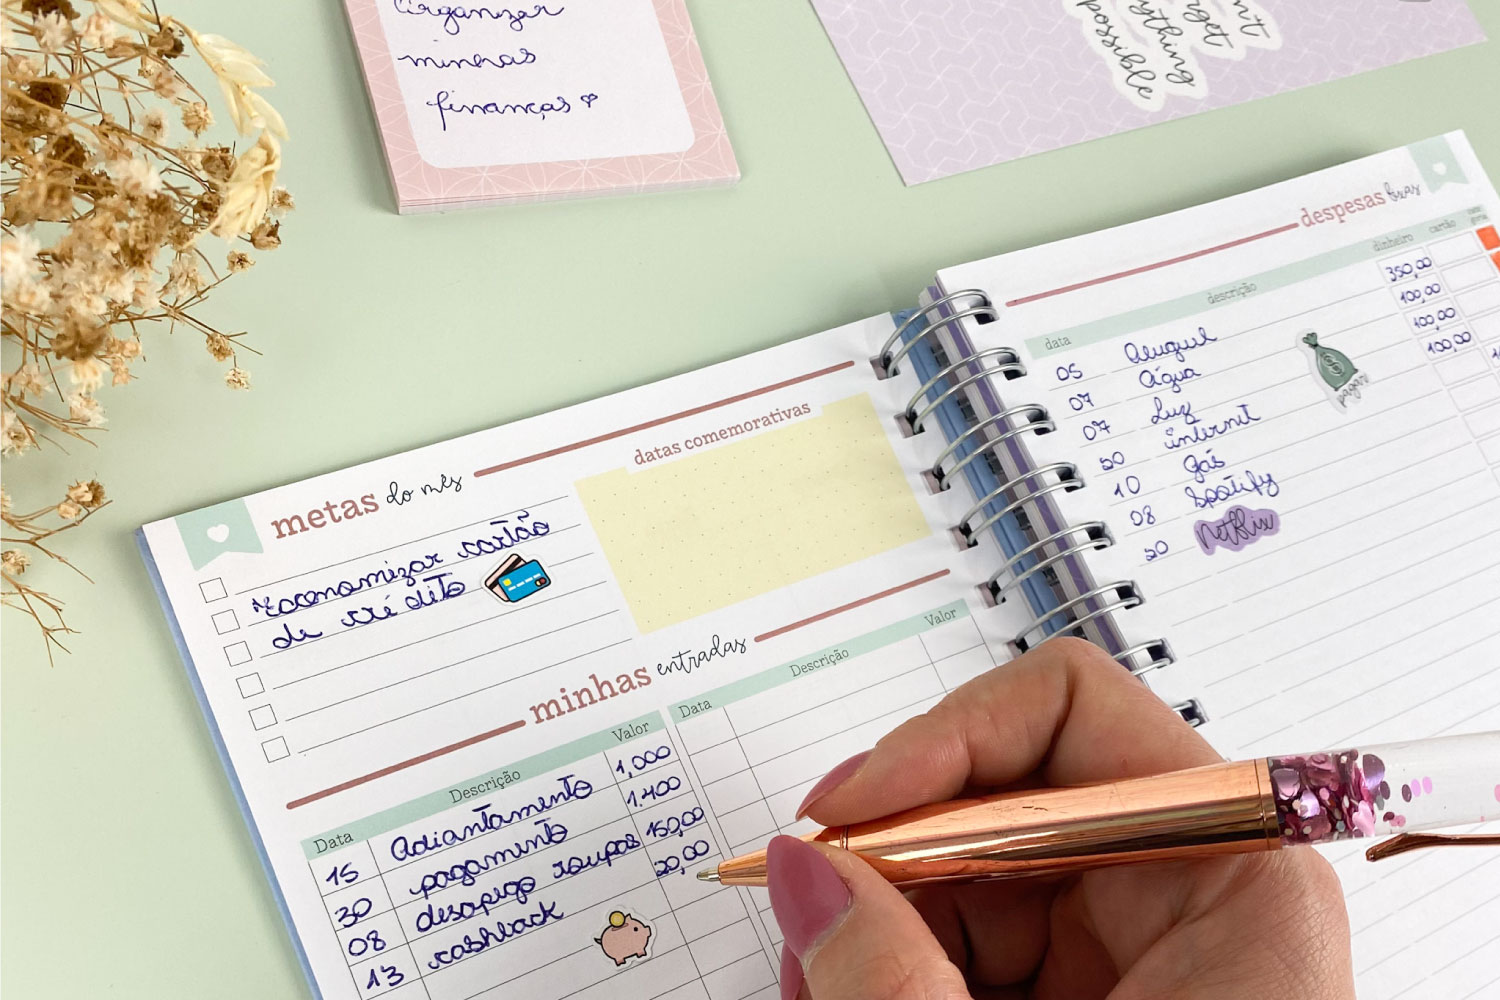 Organizar
minhas
finanças
get
everything
possible
metas do mês
Economizar cartão
de crédito
datas comemorativas
minhas entradas
Data Descrição Valor
15 Adiantamento 1,000
30 pagamento 1.400
08 desapego roupas 150,00
13 cashback 20,00
Data Descrição Valor
despesas fixas
data descrição dinheiro cartão
05 Aluguel 350,00
07 Água 100,00
07 Luz 100,00
20 internet 100,00
10 gás
08 Spotify
20 Netflix
pagar